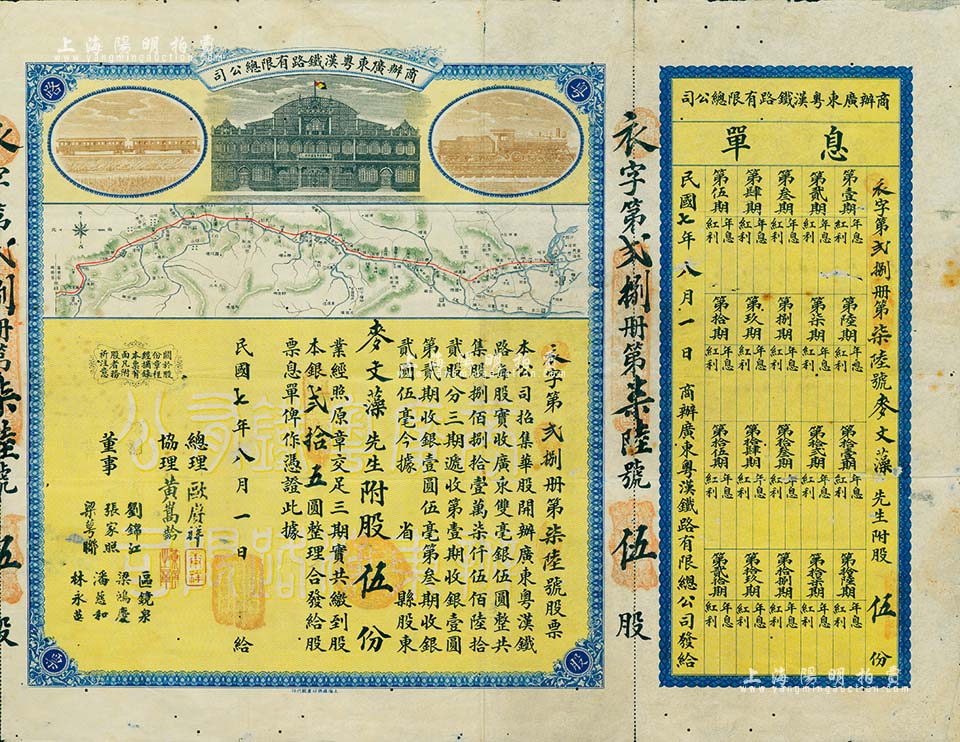 上海陽明拍賣
www.yangmingauction.com
司公總限有路鐵漢粵東廣辦商
粵
路
股
衣字第弍捌册第柒陸號股票
本公司招集華股開辦廣東粵漢鐵
路每股實收廣東雙毫銀伍圓整共
集股捌佰捌拾壹萬柒仟伍佰陸拾
貳股分三期遞收第壹期收銀壹圓
第貳期收銀壹圓伍毫第叁期收銀
貳圓伍毫今據 省 縣股東
麥文藻先生附股伍份
業經照原章交足三期實共繳到股
本銀弍拾五圓整理合發給股
票息單俾作憑證此據
民國七年八月一日給
總理 歐賡祥
協理 黃嵩齡
董事
劉錦江
張家照
梁粵聯
區鏡泉
梁鴻慶
潘慈和
林永蓝
關於股
份章程
經摘錄
本票背
面凡附
股者務
祈注意
衣字第弍捌册第柒陸號 伍 股
司公總限有路鐵漢粵東廣辦商
單 息
衣字第弍捌册第柒陸號麥文藻先生附股 伍 份
第壹期 年息 紅利
第貳期 年息 紅利
第叁期 年息 紅利
第肆期 年息 紅利
第伍期 年息 紅利
第陸期 年息 紅利
第柒期 年息 紅利
第捌期 年息 紅利
第玖期 年息 紅利
第拾期 年息 紅利
第拾壹期 年息 紅利
第拾貳期 年息 紅利
第拾叁期 年息 紅利
第拾肆期 年息 紅利
第拾伍期 年息 紅利
第拾陸期 年息 紅利
第拾柒期 年息 紅利
第拾捌期 年息 紅利
第拾玖期 年息 紅利
第貳拾期 年息 紅利
民國七年八月一日 商辦廣東粵漢鐵路有限總公司發給
衣字第弍捌册第柒陸號 伍 股
上海陽明拍賣
www.yangmingauction.com